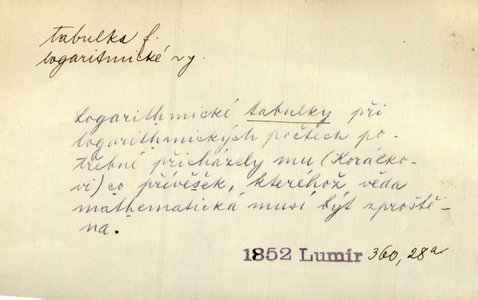 tabulka f.
logaritmické ~y.
Logarithmické tabulky při
logarithmických počtech po-
třebné přicházely mu (Koráčko-
vi) co přívěšek, kteréhož věda
mathematická musí být zproště-
na.
1852 Lumír 360, 28a